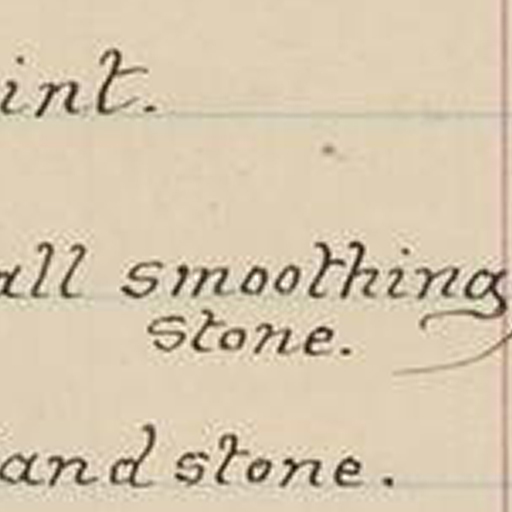 int.
all smoothing
stone.
and stone.